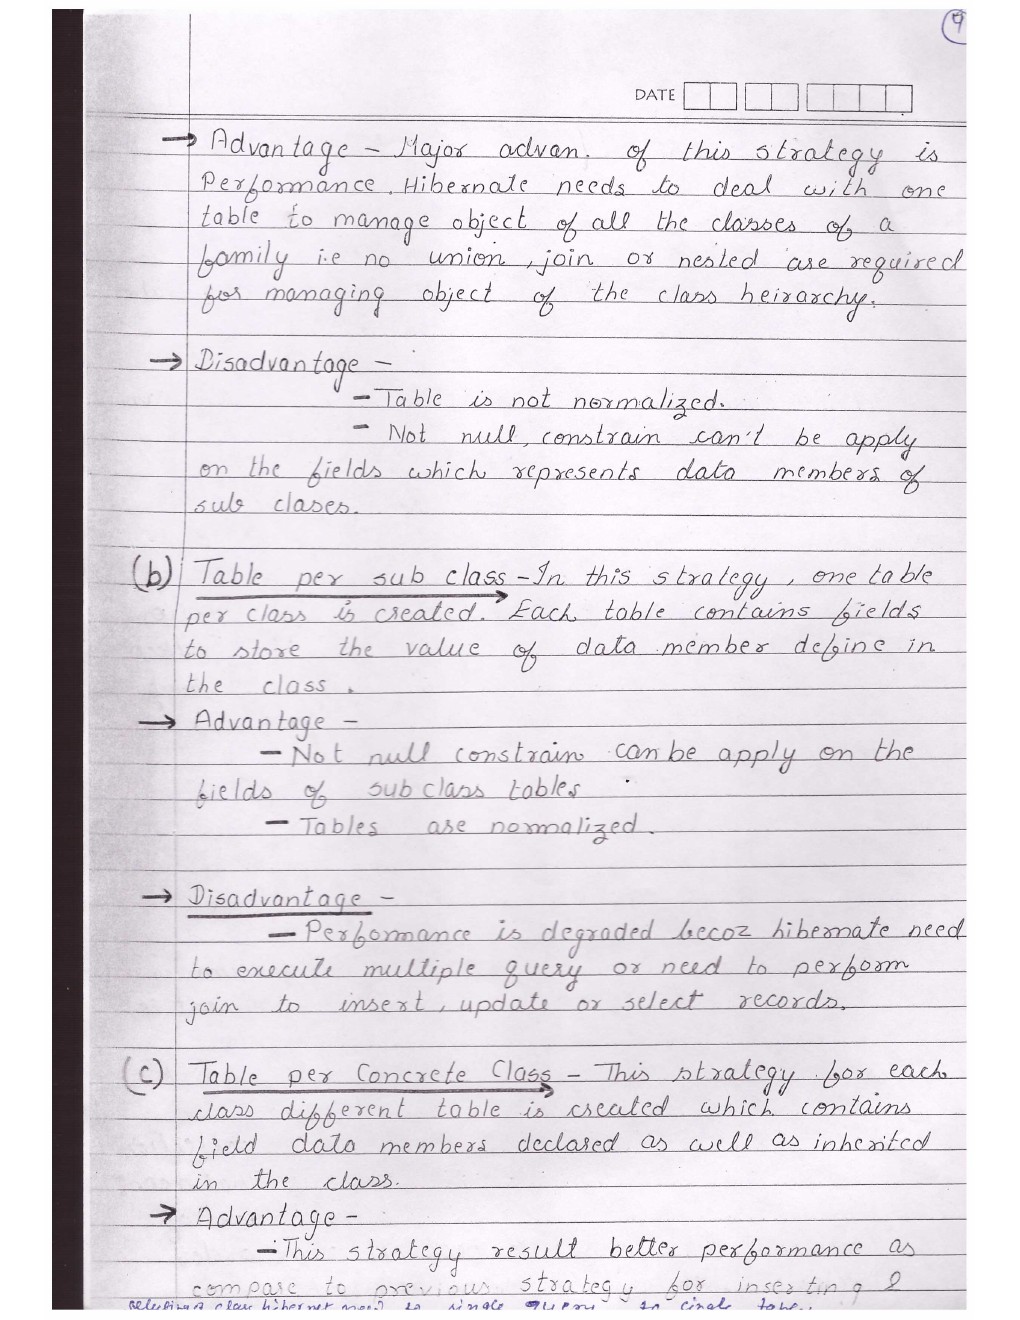 9
DATE
→ Advantage - Major advan. of this strategy is
Performance. Hibernate needs to deal with one
table to manage object of all the classes of a
family i.e no union, join or nested are required
for managing object of the class heirarchy.
→ Disadvantage -
- Table is not normalized.
- Not null, constrain can't be apply
on the fields which represents data members of
sub clases.
(b) Table per sub class - In this strategy, one table
per class is created. Each table contains fields
to store the value of data member define in
the class.
→ Advantage -
- Not null constrain can be apply on the
fields of sub class tables
- Tables are normalized.
→ Disadvantage -
- Performance is degraded becoz hibernate need
to execute multiple query or need to perform
join to insert, update or select records.
(c) Table per Concrete Class - This strategy for each
class different table is created which contains
field data members declared as well as inherited
in the class.
→ Advantage -
- This strategy result better performance as
compare to previous strategy for inserting &
class hibernet need to single query